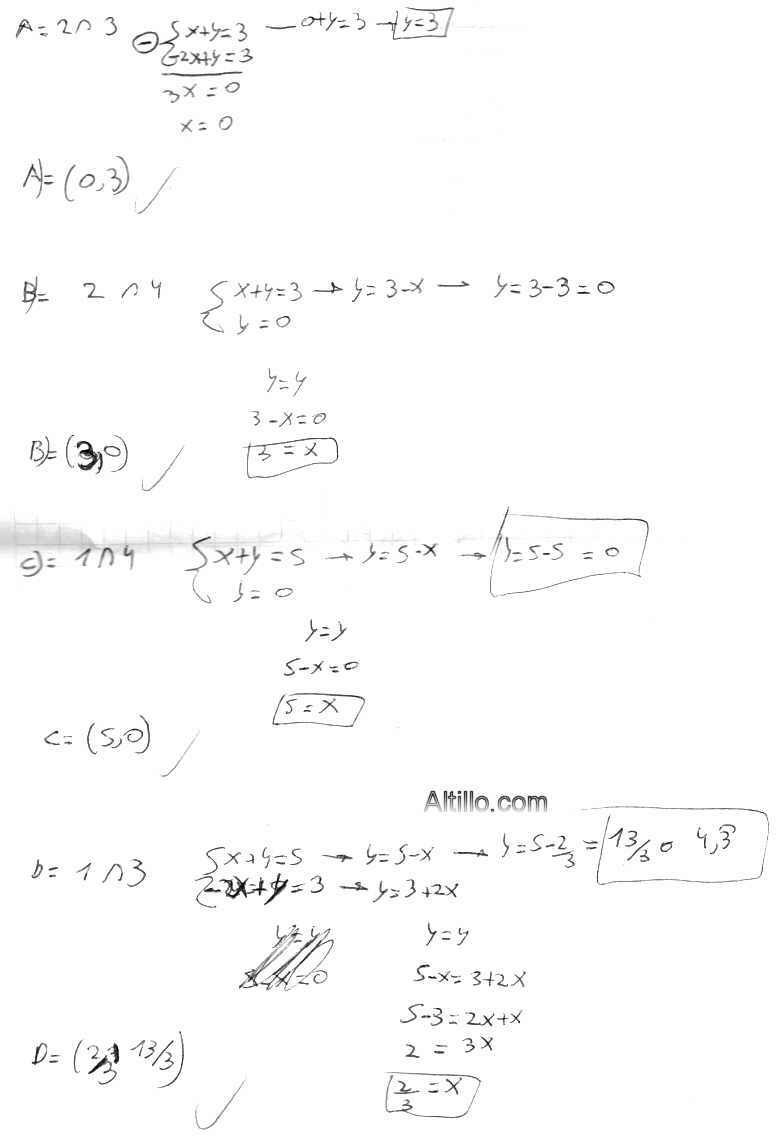 A= 2∩3 ⊖ { x+y=3 — 0+y=3 → y=3
-2x+y=3
3x = 0
x= 0
A)= (0,3) ✓
B)= 2∩4 { x+y=3 → y=3-x → y=3-3=0
y=0
y=y
3-x=0
3=x
B)= (3,0) ✓
C)= 1∩4 { x+y=5 → y=5-x → y=5-5 = 0
y= 0
y=y
5-x=0
5=x
C= (5,0) ✓
Altillo.com
D= 1∩3 { x+y=5 → y=5-x → y=5-2/3 = 13/3 o 4,3̂
-2x+y=3 → y=3+2x
y=y
5-x=3+2x
5-3=2x+x
2 = 3x
2/3 = x
D= (2/3, 13/3) ✓